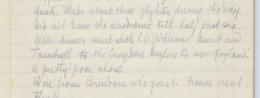 drink. Made about three flights during the day,
did not leave the aerodrome till half past six.
After dinner went with C.O., Williams, Hurst and
Turnbull to the Croydon Empire to see
A pretty poor show.
Wire from Brendan who goes to France next